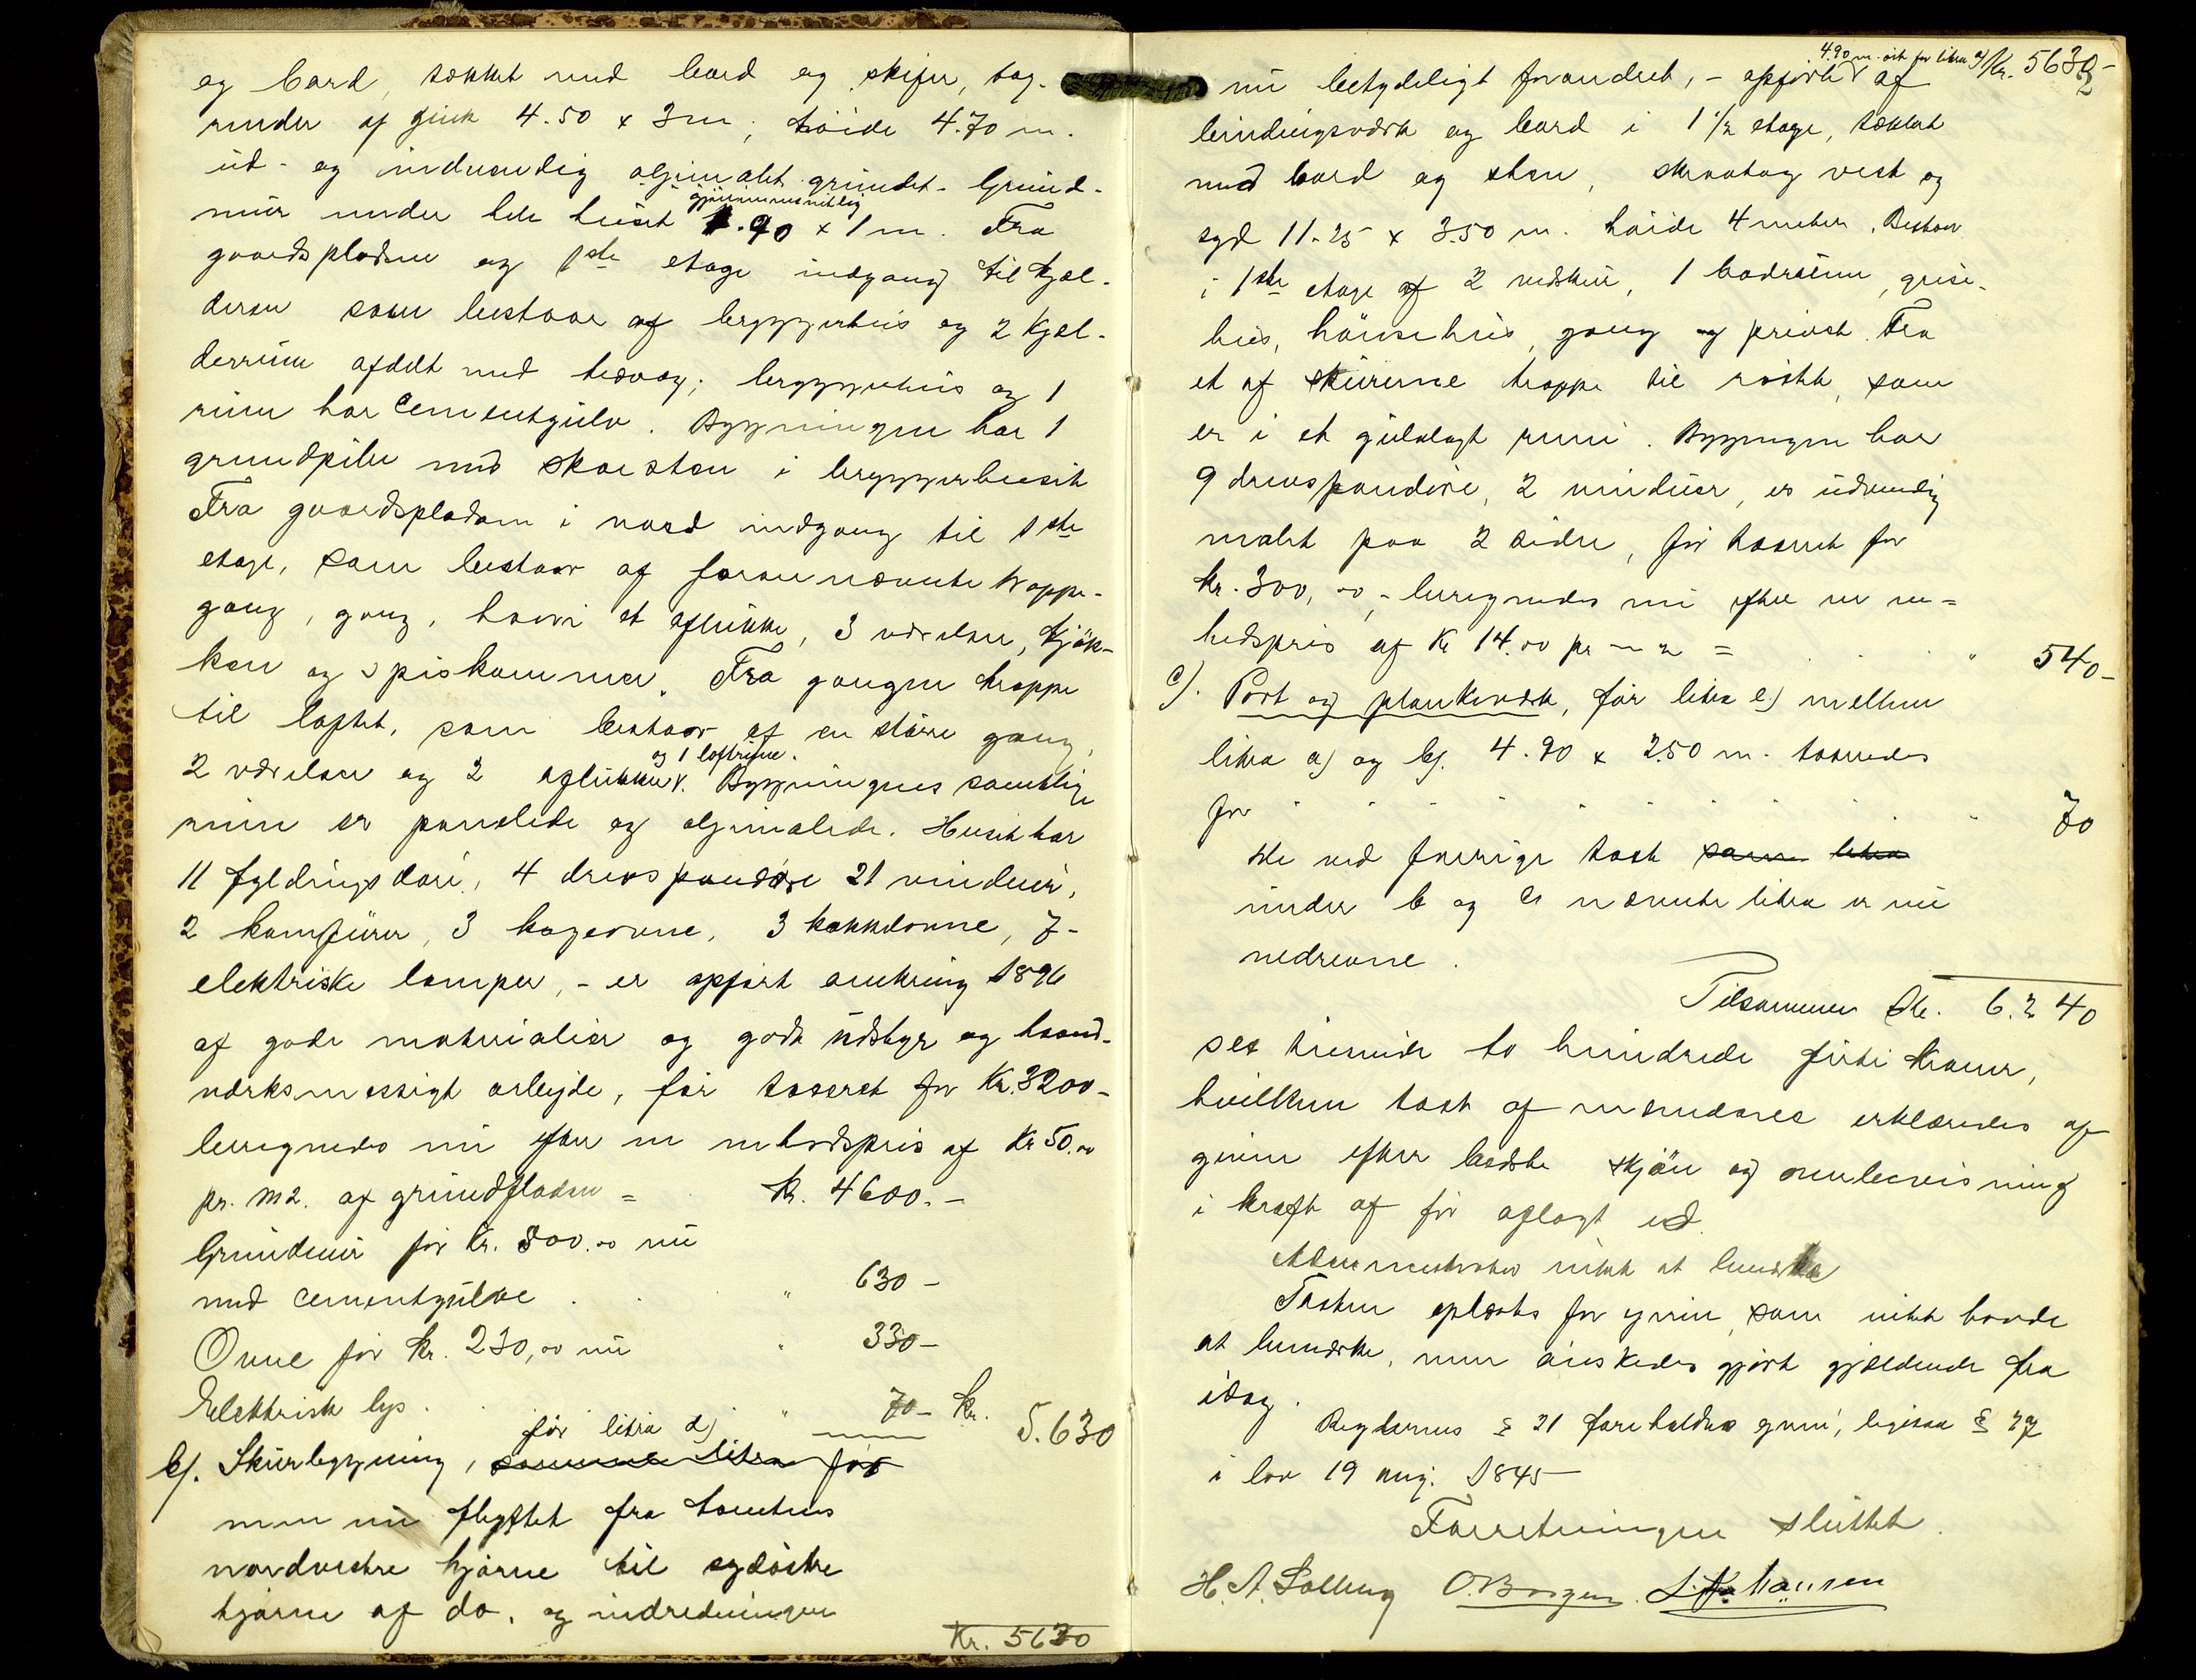 og bord, tækket med bord og skifer, tag-
render af zink 4.50 x 3 m, høide 4.70 m.
ud- og indvendig oljemalet grundet. Grund-
mur under hele huset gjennemsnitlig 1.90 x 1 m. Fra
gaardspladsen og 1ste etage indgang til kjæl-
deren som bestaar af bryggerhus og 2 kjæl-
derrum afdelt med trævæg; bryggerhus og 1
rum har cementgulv. Bygningen har 1
grundpibe med skorsten i bryggerhuset
Fra gaardspladsen i nord indgang til 1ste
etage, som bestaar af forannævnte trappe-
gang, gang, hvori et aflukke, 3 værelser, kjøk-
ken og spiskammer. Fra gangen trappe
til loftet, som bestaar af en større gang,
2 værelser og 2 aflukker og 1 loftrum. Bygningens samtlige
rum er panelede og oljemalede. Huset har
11 fyldingsdøre, 4 drevspandøre 21 vinduer,
2 komfurer, 3 kogeovne, 3 kakkelovne, 7-
elektriske lamper, - er opført omkring 1896
af gode materialier og godt udstyr og haand-
værksmessigt arbejde, før taxeret for Kr. 3200-
beregnedes nu efter en enhedspris af Kr 50.00
pr. m2. af grundfladen = Kr. 4600.-
Grundmur før Kr. 800.00 nu
med cementgulve . . " 630-
Ovne før Kr. 230,00 nu " 330-
Elektrisk lys . . " 70- Kr. 5.630
b). Skurbygning, samme litra før før litra d)
men nu flyttet fra tomtens
nordvestre hjørne til sydøstre
hjørne af do. og indredningen
Kr. 5630
Kr. 5630-
nu betydeligt forandret, - opført 4.90 m. øst for litra a) af
bindingsværk og bord i 1 1/2 etage, tækket
med bord og sten, skraatag vest og
syd 11.25 x 3.50 m. høide 4 meter. Bestaar
i 1ste etage af 2 vedskur, 1 bodrum, grise-
hus, hønsehus, gang og privet. Fra
et af skurerne trappe til röstet, som
er i et gulvlagt rum. Bygningen har
9 drevspandøre, 2 vinduer, er udvendig
malet paa 2 sider, før taxeret for
Kr. 300,00, - beregnedes nu efter en en-
hedspris af Kr 14.00 pr m 2 = . . " 540-
c). Port og plankeværk, før litra e) mellem
litra a) og b). 4.90 x 2.50 m. taxeredes
for . . . . . . . " 70
De ved forrige taxt som litra
under b og c nævnte litra er nu
nedrevne.
Tilsammen Kr. 6.240
sex tusinde to hundrede firti kroner,
hvilken taxt af mændene erklæredes af-
given efter bedste skjøn og overbevisning
i kraft af før aflagt ed.
Administrator intet at bemerke
Taxten oplæstes for eieren, som intet havde
at bemærke, men ønskedes gjort gjældende fra
idag.
Reglernes § 21 foreholdtes eieren, ligesaa § 27
i lov 19 aug. 1845-
Forretningen sluttet.
H. A. Solberg O. Borgen L. Johansen